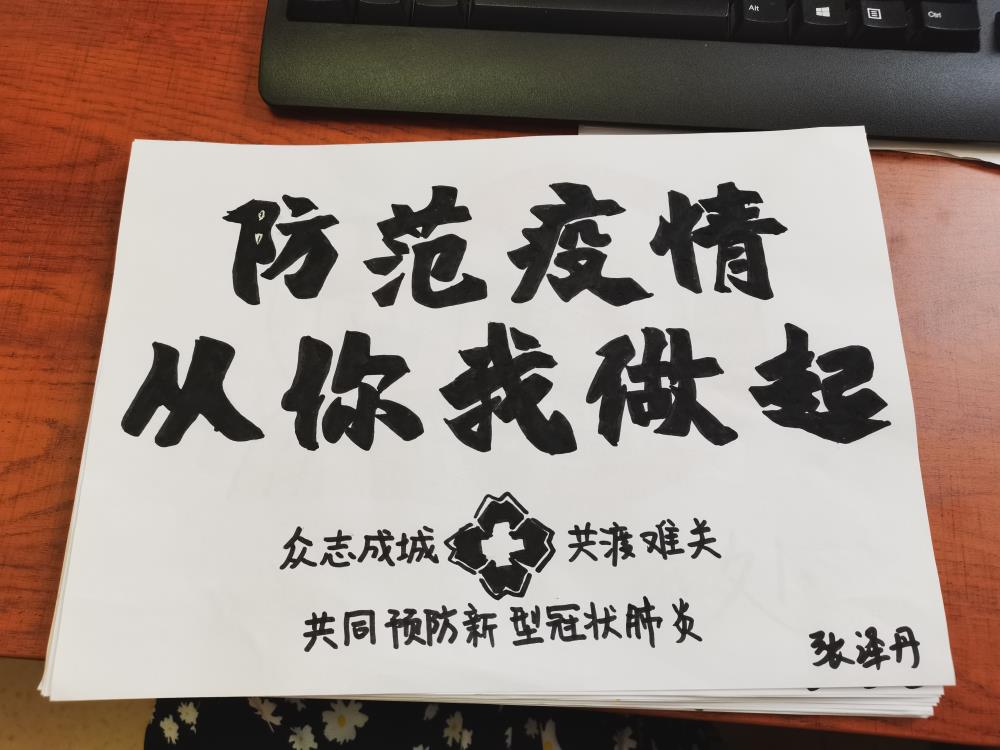 Alt Ctrl
防范疫情
从你我做起
众志成城 共渡难关
共同预防新型冠状肺炎
张泽丹